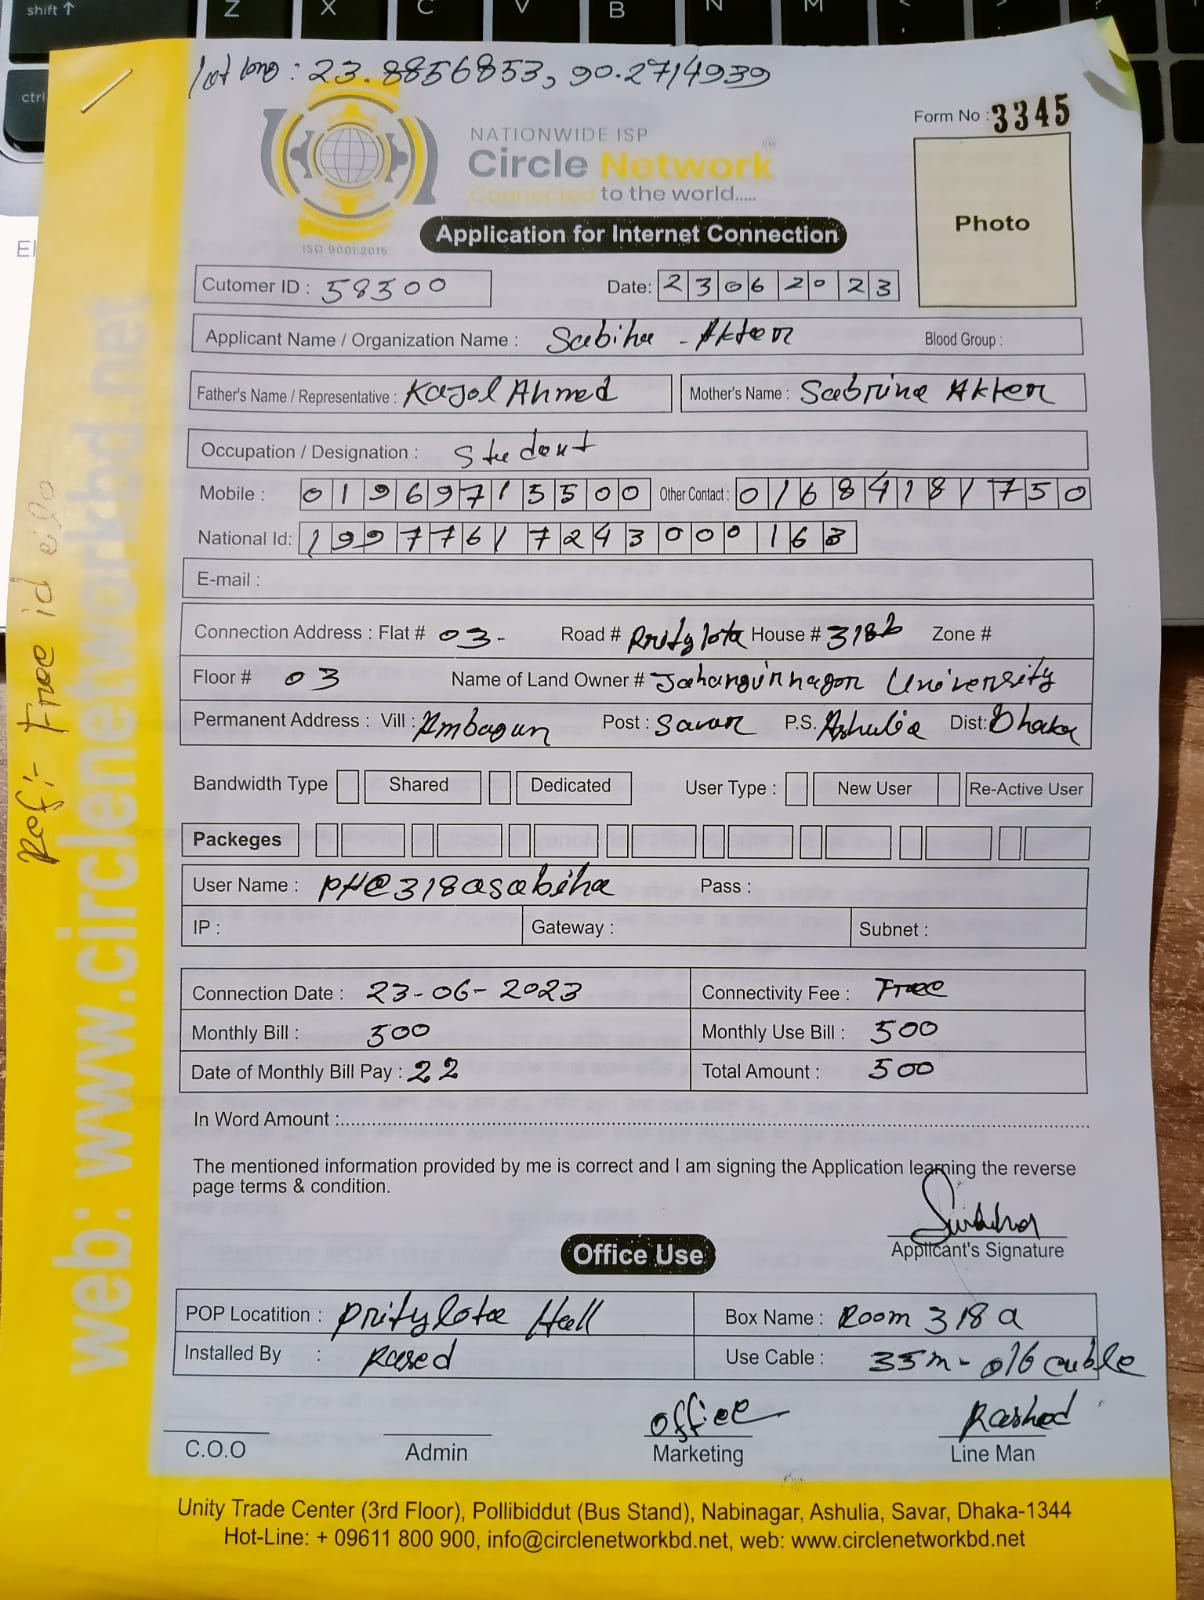 shift ↑ Z X C V B N M
ctrl
lat long : 23.8856853, 90.2714939
Form No : 3345
NATIONWIDE ISP
Circle Network
Connected to the world.....
ISO 9001:2015
Photo
Application for Internet Connection
Cutomer ID : 58300 Date: 23062023
Applicant Name / Organization Name : Sabiha - Akter Blood Group :
Father's Name / Representative : Kajol Ahmed Mother's Name : Sabrina Akter
Occupation / Designation : Student
Mobile : 01969715500 Other Contact : 01684181750
National Id: 19977617243000163
E-mail :
Connection Address : Flat # 03- Road # Pritylota House # 318b Zone #
Floor # 03 Name of Land Owner # Jahangirnagar University
Permanent Address : Vill : Ambagan Post : Savar P.S. Ashulia Dist: Dhaka
Bandwidth Type Shared Dedicated User Type : New User Re-Active User
Packeges
User Name : PH@318asabiha Pass :
IP : Gateway : Subnet :
Connection Date : 23-06-2023 Connectivity Fee : Free
Monthly Bill : 500 Monthly Use Bill : 500
Date of Monthly Bill Pay : 22 Total Amount : 500
In Word Amount :
The mentioned information provided by me is correct and I am signing the Application learning the reverse
page terms & condition.
Applicant's Signature
Office Use
POP Locatition : Pritylota Hall Box Name : Room 318 a
Installed By : Rased Use Cable : 35m - 016 cable
Office Rashed
C.O.O Admin Marketing Line Man
Unity Trade Center (3rd Floor), Pollibiddut (Bus Stand), Nabinagar, Ashulia, Savar, Dhaka-1344
Hot-Line: + 09611 800 900, info@circlenetworkbd.net, web: www.circlenetworkbd.net
web: www.circlenetworkbd.net
Ref:- Free id